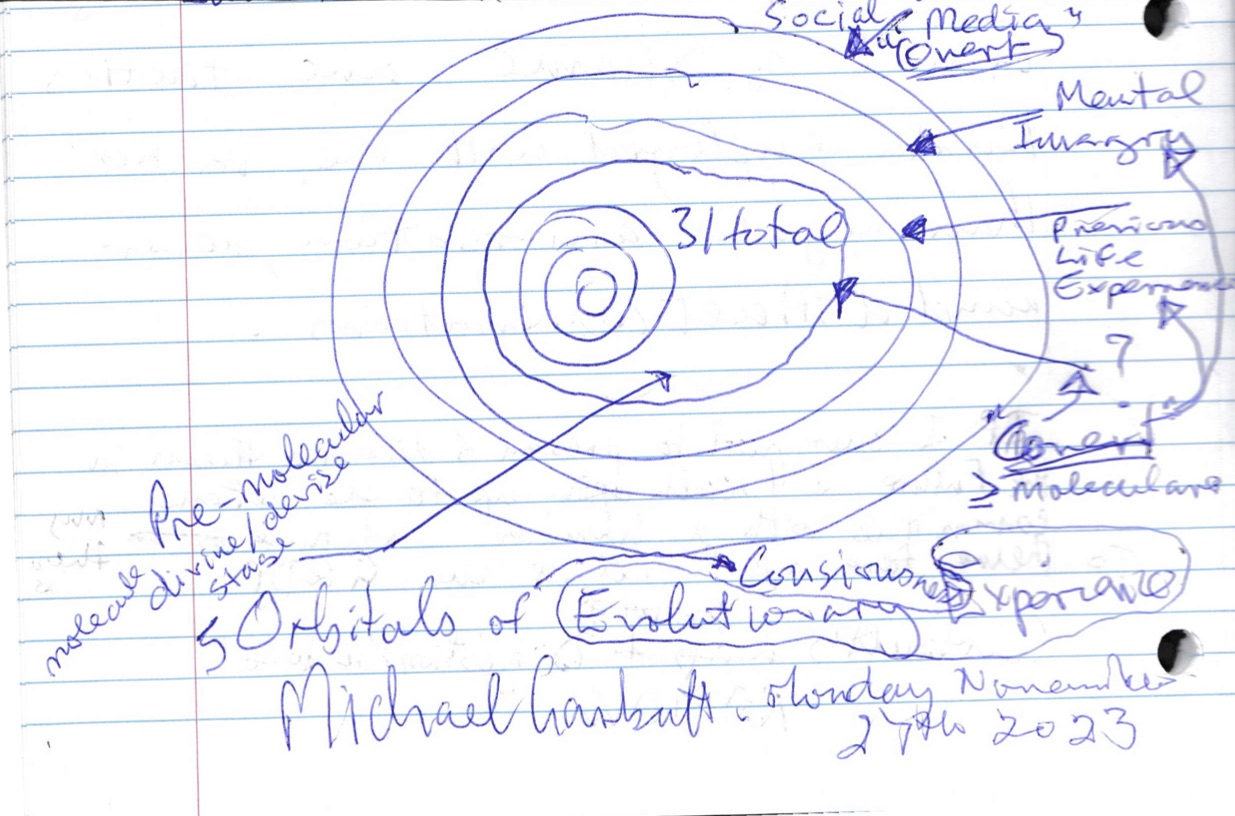 Social Media"
"Overt"
Mental
Imvargry
31 total
Previous
Life
Experience
?
"Covert"
≥ Moleculare
Pre-molecular
divine/devise
stage
molecule
Consiousness Experience
5 Orbitals of Evolutionary
Michael Garbutt. Monday November
27th 2023